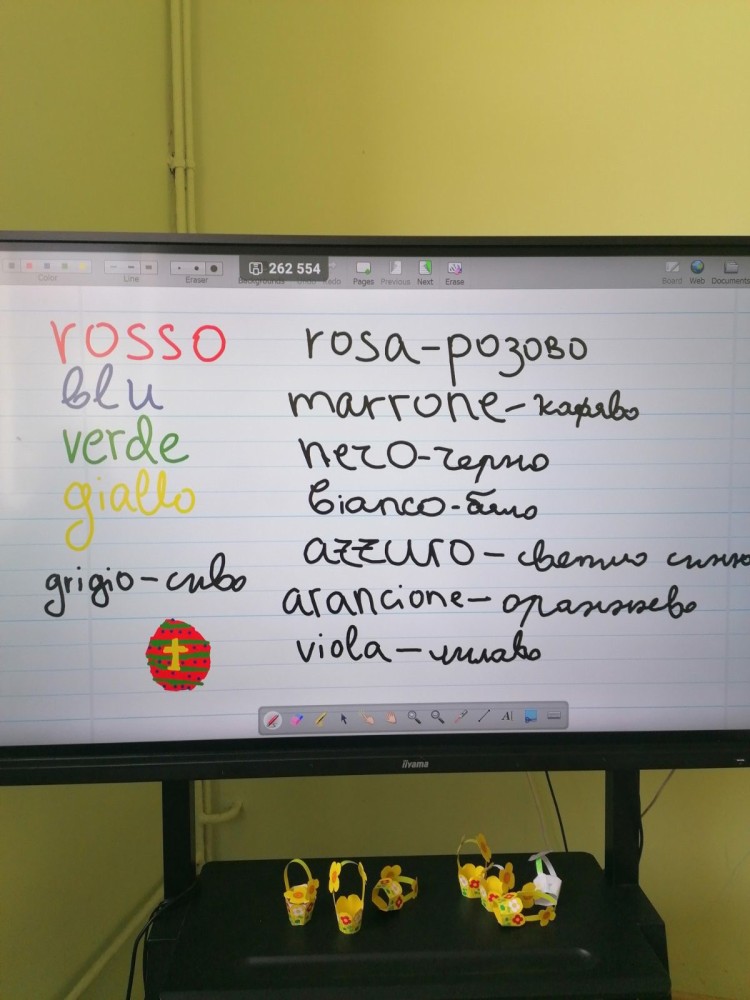 Color
Line
Eraser
Backgrounds
262 554
Undo
Redo
Pages
Previous
Next
Erase
Board
Web
Documents
rosso
blu
verde
giallo
grigio-сиво
rosa-розово
marrone-кафяво
nero-черно
bianco-бяло
azzuro-светло синьо
arancione-оранжево
viola-лилаво
iiyama